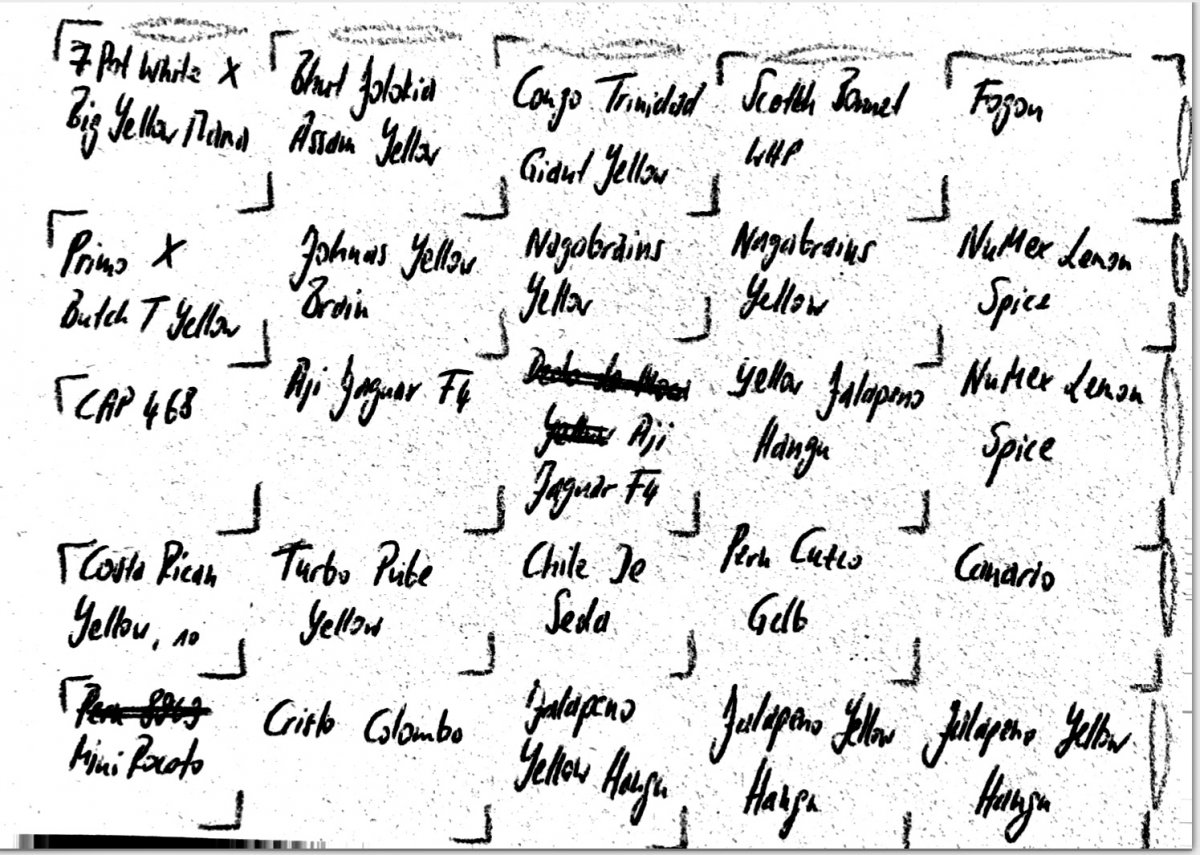 7 Pot White X
Big Yellow Mama
Bhut Jolokia
Assam Yellow
Congo Trinidad
Giant Yellow
Scotch Bonnet
WHP
Fogon
Primo X
Butch T Yellow
Johnas Yellow
Brain
Nagabrains
Yellow
Nagabrains
Yellow
NuMex Lemon
Spice
CAP 468
Aji Jaguar F4
Yellow Aji
Jaguar F4
Yellow Jalapeno
Hangu
NuMex Lemon
Spice
Costa Rican
Yellow, 10
Turbo Pube
Yellow
Chile De
Seda
Peru Cuzco
Gelb
Canario
Mini Rocoto
Cristo Colombo
Jalapeno
Yellow Hangu
Jalapeno Yellow
Hangu
Jalapeno Yellow
Hangu